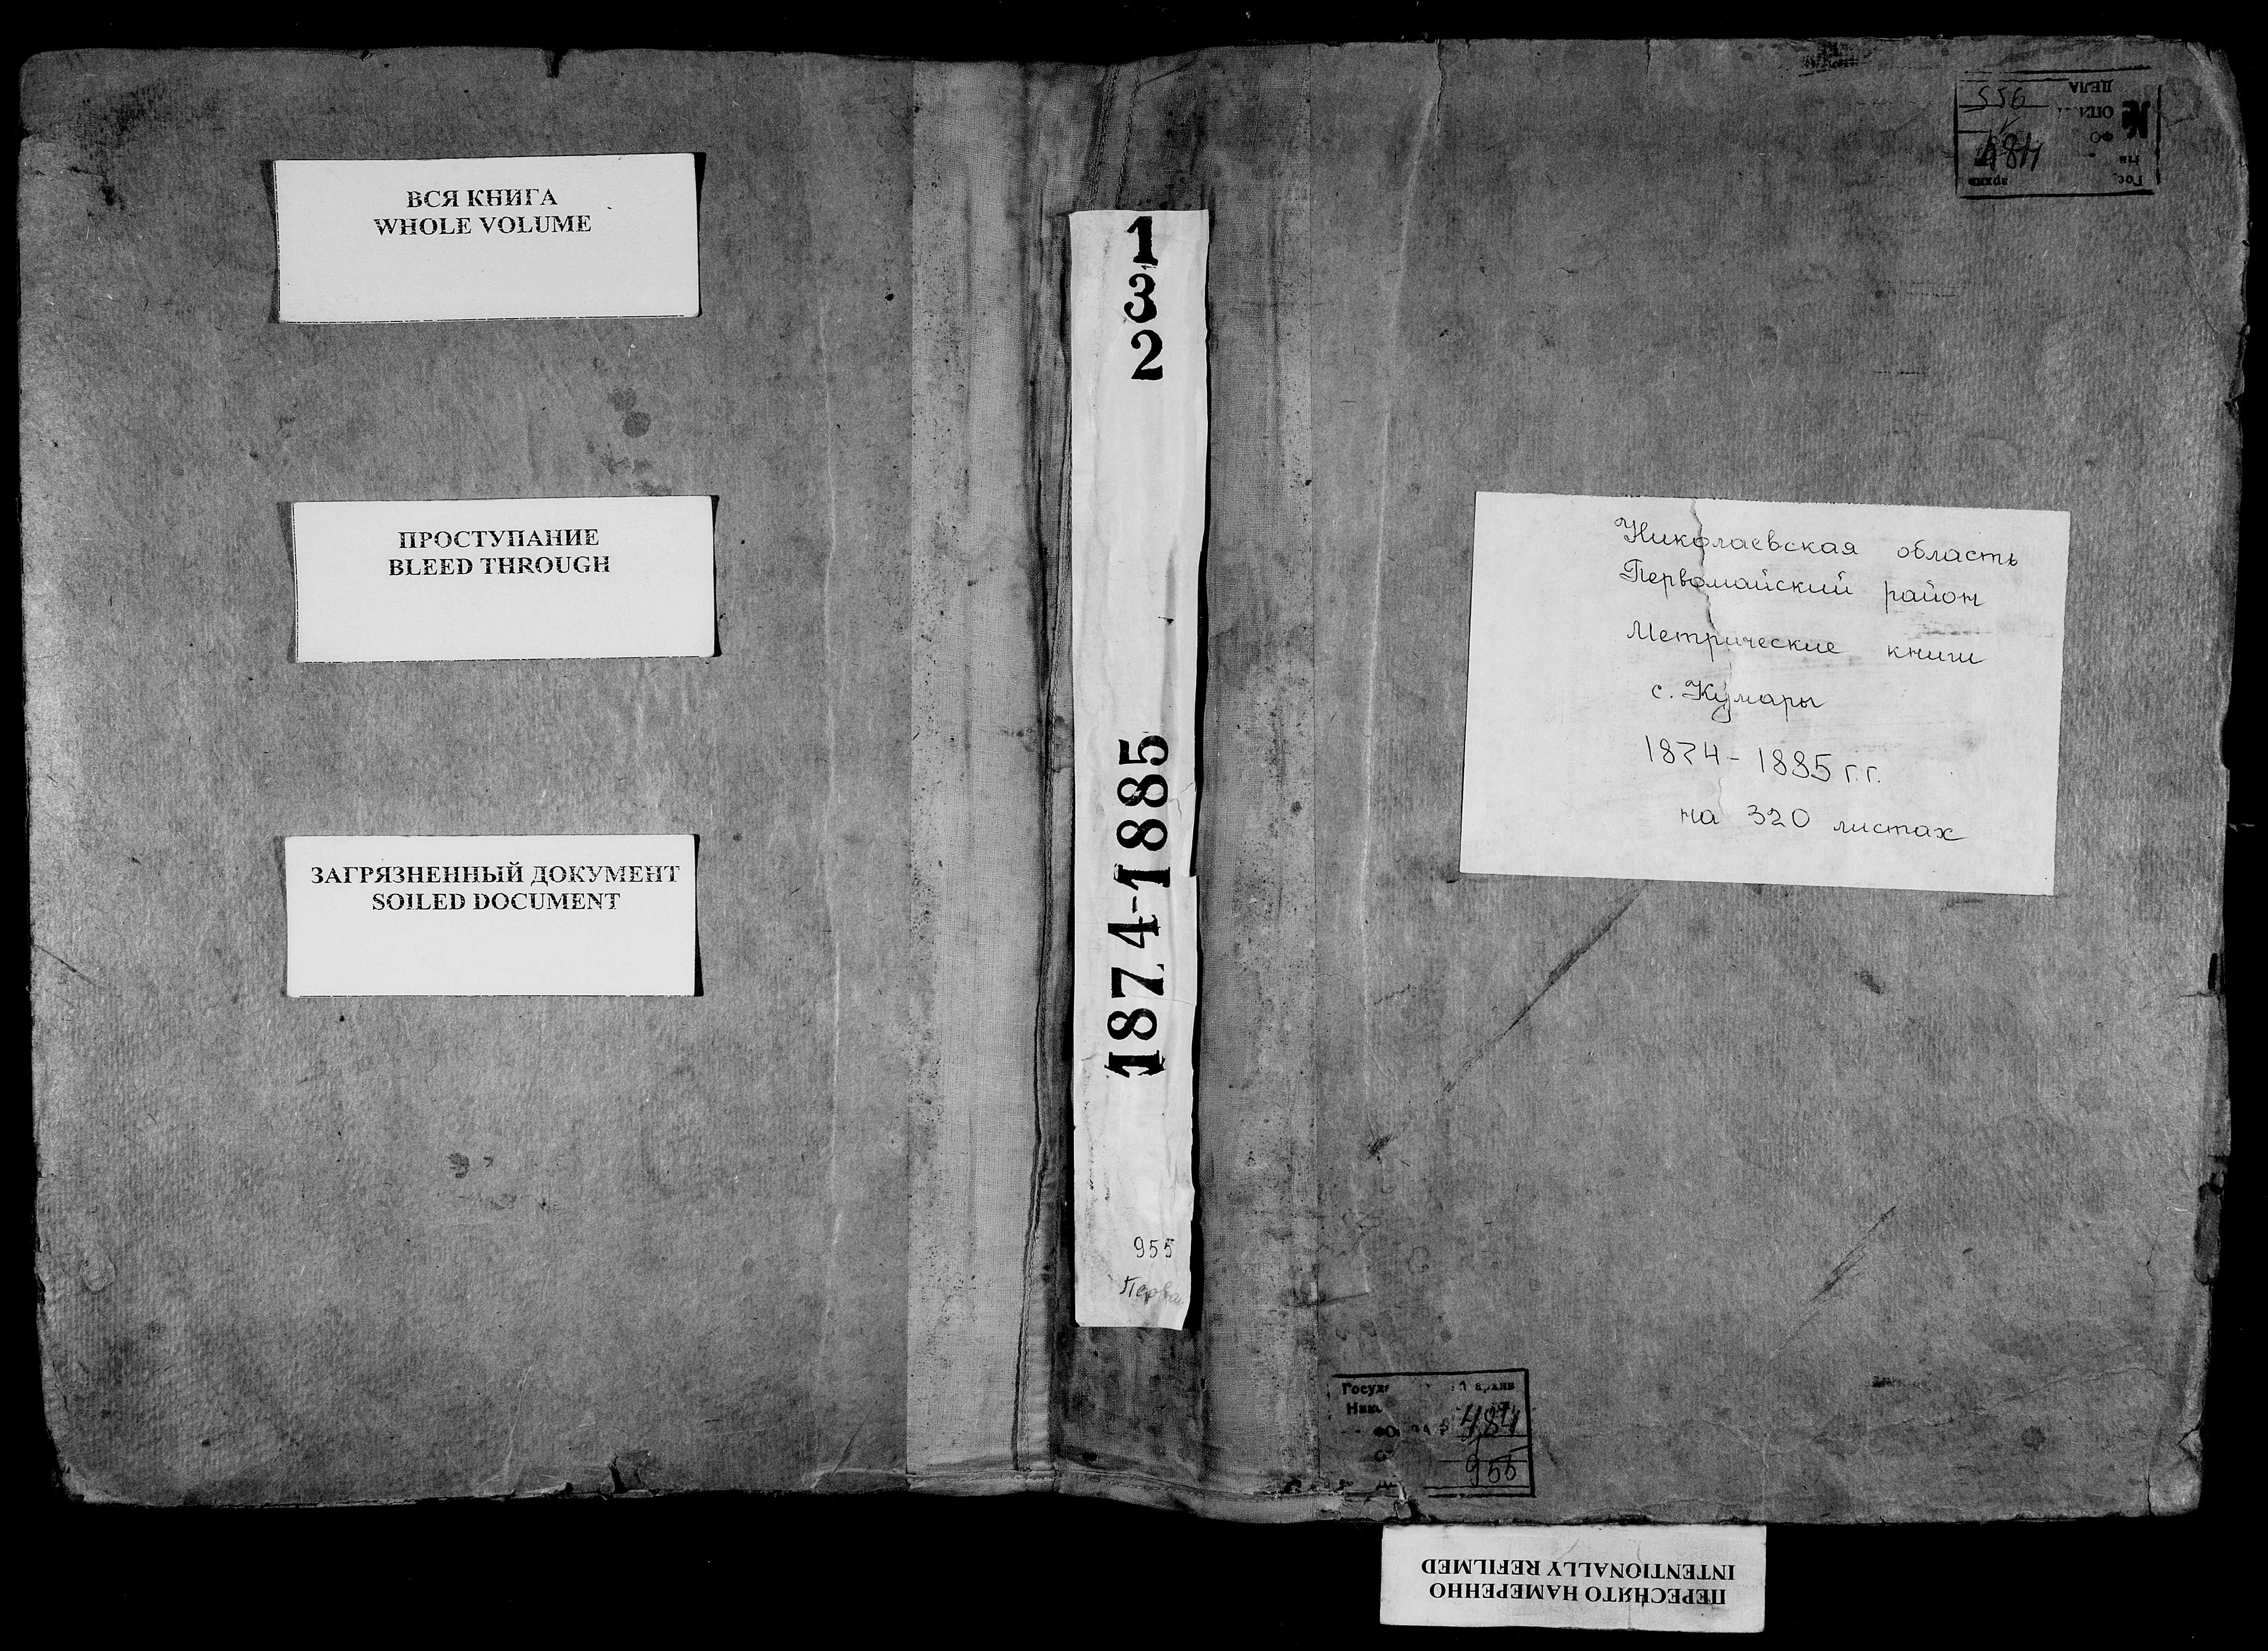 ВСЯ КНИГА
WHOLE VOLUME
ПРОСТУПАНИЕ
BLEED THROUGH
ЗАГРЯЗНЕННЫЙ ДОКУМЕНТ
SOILED DOCUMENT
132
1874-1885
955
Николаевская область
Первомайский район
Метрические книги
с. Кумары
1874-1885 г.г.
на 320 листах
484
ДЕЛА
архив
484
955
ПЕРЕСНЯТО НАМЕРЕННО
INTENTIONALLY REFILMED